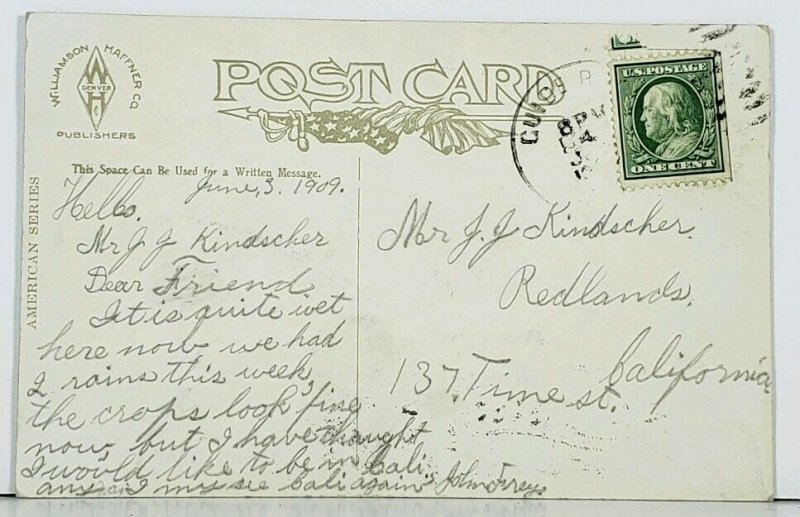 WILLIAMSON HAFFNER CO
W H
DENVER
PUBLISHERS
POST CARD
AMERICAN SERIES
This Space Can Be Used for a Written Message.
U.S. POSTAGE
ONE CENT
8 PM
June, 3. 1909.
Hello,
Mr J J Kindscher
Dear Friend
It is quite wet
here now we had
2 rains this week,
the crops look fine
now, but I have thaught
I would like to be in Cali
I may see Cali again, John
Mr J. J Kindscher.
Redlands.
California.
137. Time st.